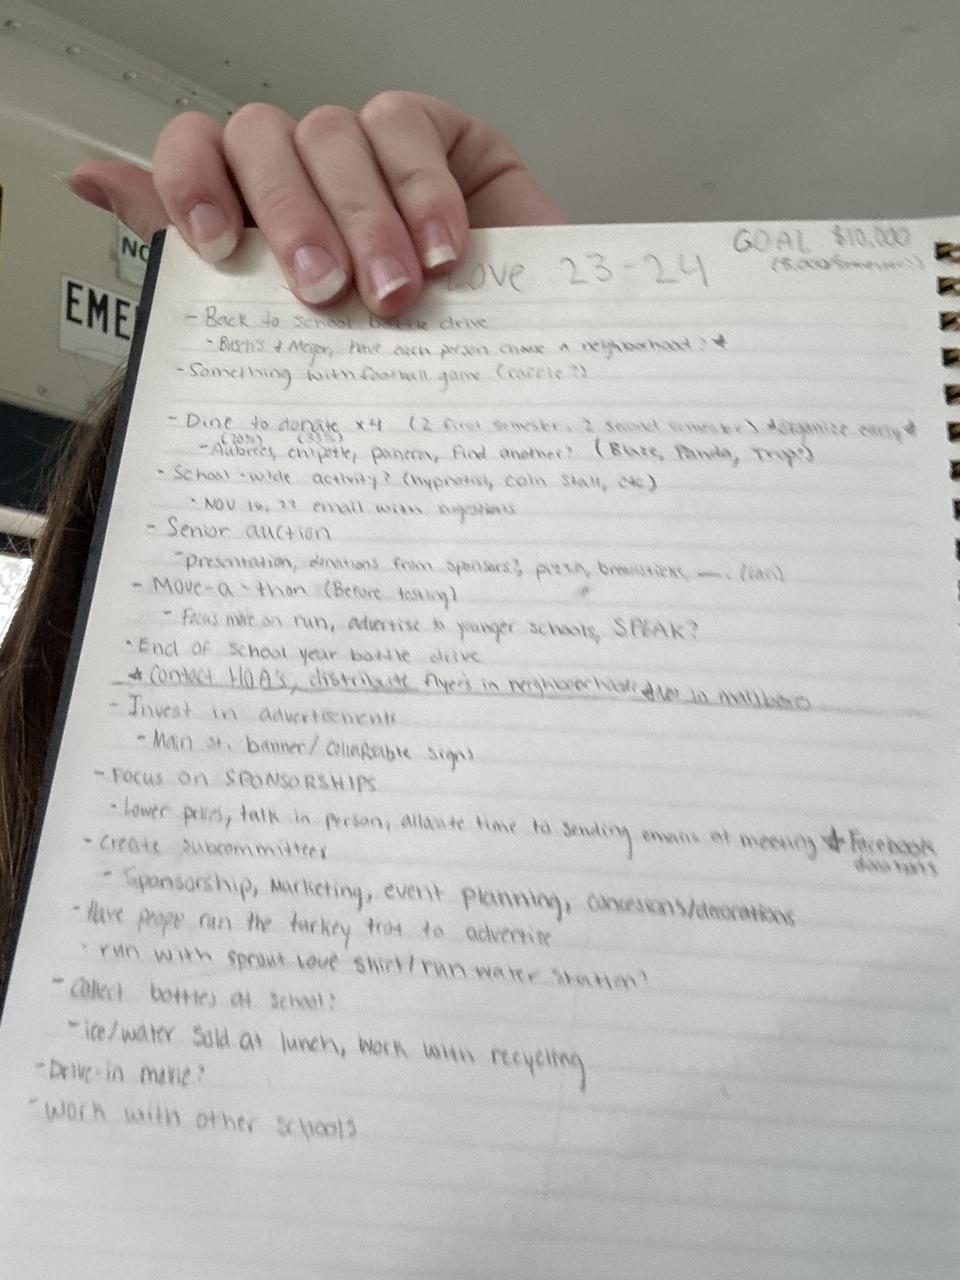 NO
EME
GOAL $10,000
(5,000/semester!)
Love 23-24
- Back to school bottle drive
- Busch's & Meijer, have each person choose a neighborhood?
- Something with football game (raffle?)
- Dine to donate x4 (2 first semester, 2 second semester) *organize early*
(20%) (33%)
- Aubrees, chipotle, panera, find another? (Blaze, Panda, Trop?)
- School-wide activity? (hypnotist, coin stall, etc)
• NOV 16, 22 email with sugestions
- Senior auction
- presentation, donations from sponsors?, pizza, breadsticks,
- Move-a-thon (Before testing)
- Focus more on run, advertise to younger schools, SPEAK?
• End of school year bottle drive
* Contact HOA's, distribute flyers in neighborhoods *not in mailboxes
- Invest in advertisements
- Main st. banner/collapsable signs
- Focus on SPONSORSHIPS
• Lower prices, talk in person, allocate time to sending emails at meeting * Facebook
donations
- Create subcommittees
- Sponsorship, Marketing, event planning, concessions/decorations
- Have people run the turkey trot to advertise
• run with sprout love shirt/run water station?
- Collect bottles at school?
- ice/water sold at lunch, work with recycling
- Drive-in movie?
- Work with other schools